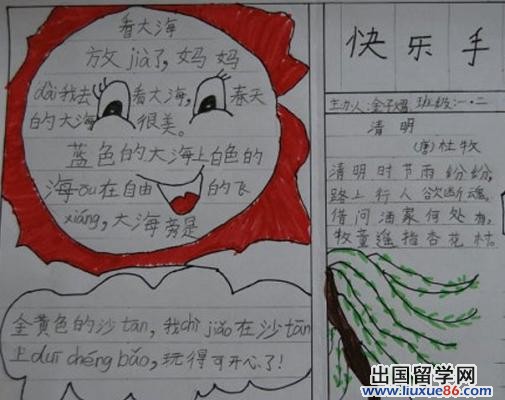 看大海
放jià了,妈妈
dài我去看大海,春天
的大海很美。
蓝色的大海上白色的
海ōu在自由的飞
xiáng,大海旁是
金黄色的沙tān,我chì jiǎo在沙tān
上duī chéng bǎo,玩得可开心了!
快乐手
主办人:金子 班级:一·二
清明
(唐)杜牧
清明时节雨纷纷,
路上行人欲断魂。
借问酒家何处有,
牧童遥指杏花村。
出国留学网
www.liuxue86.com